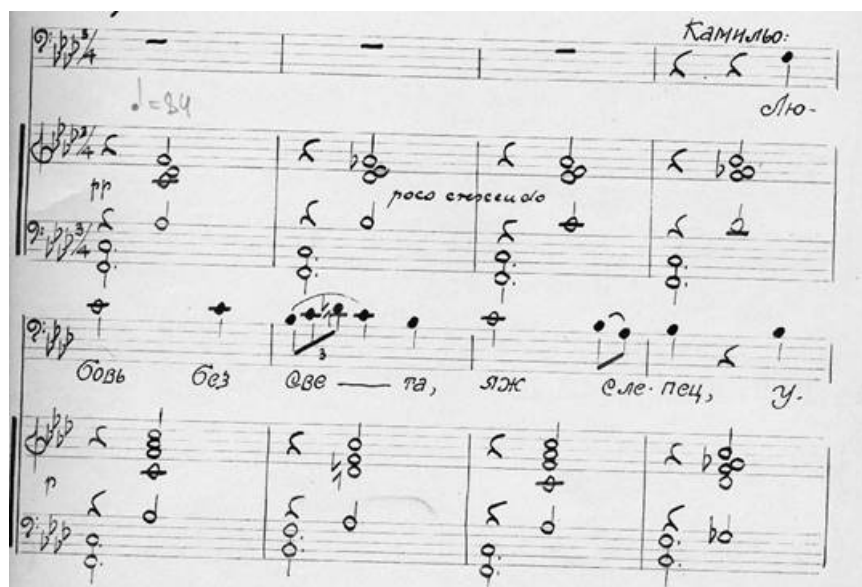 3/4
Камильо:
Лю-
♩=84
3/4
pp
poco crescendo
3/4
3
бовь без све — та, яж сле-пец, у-
p